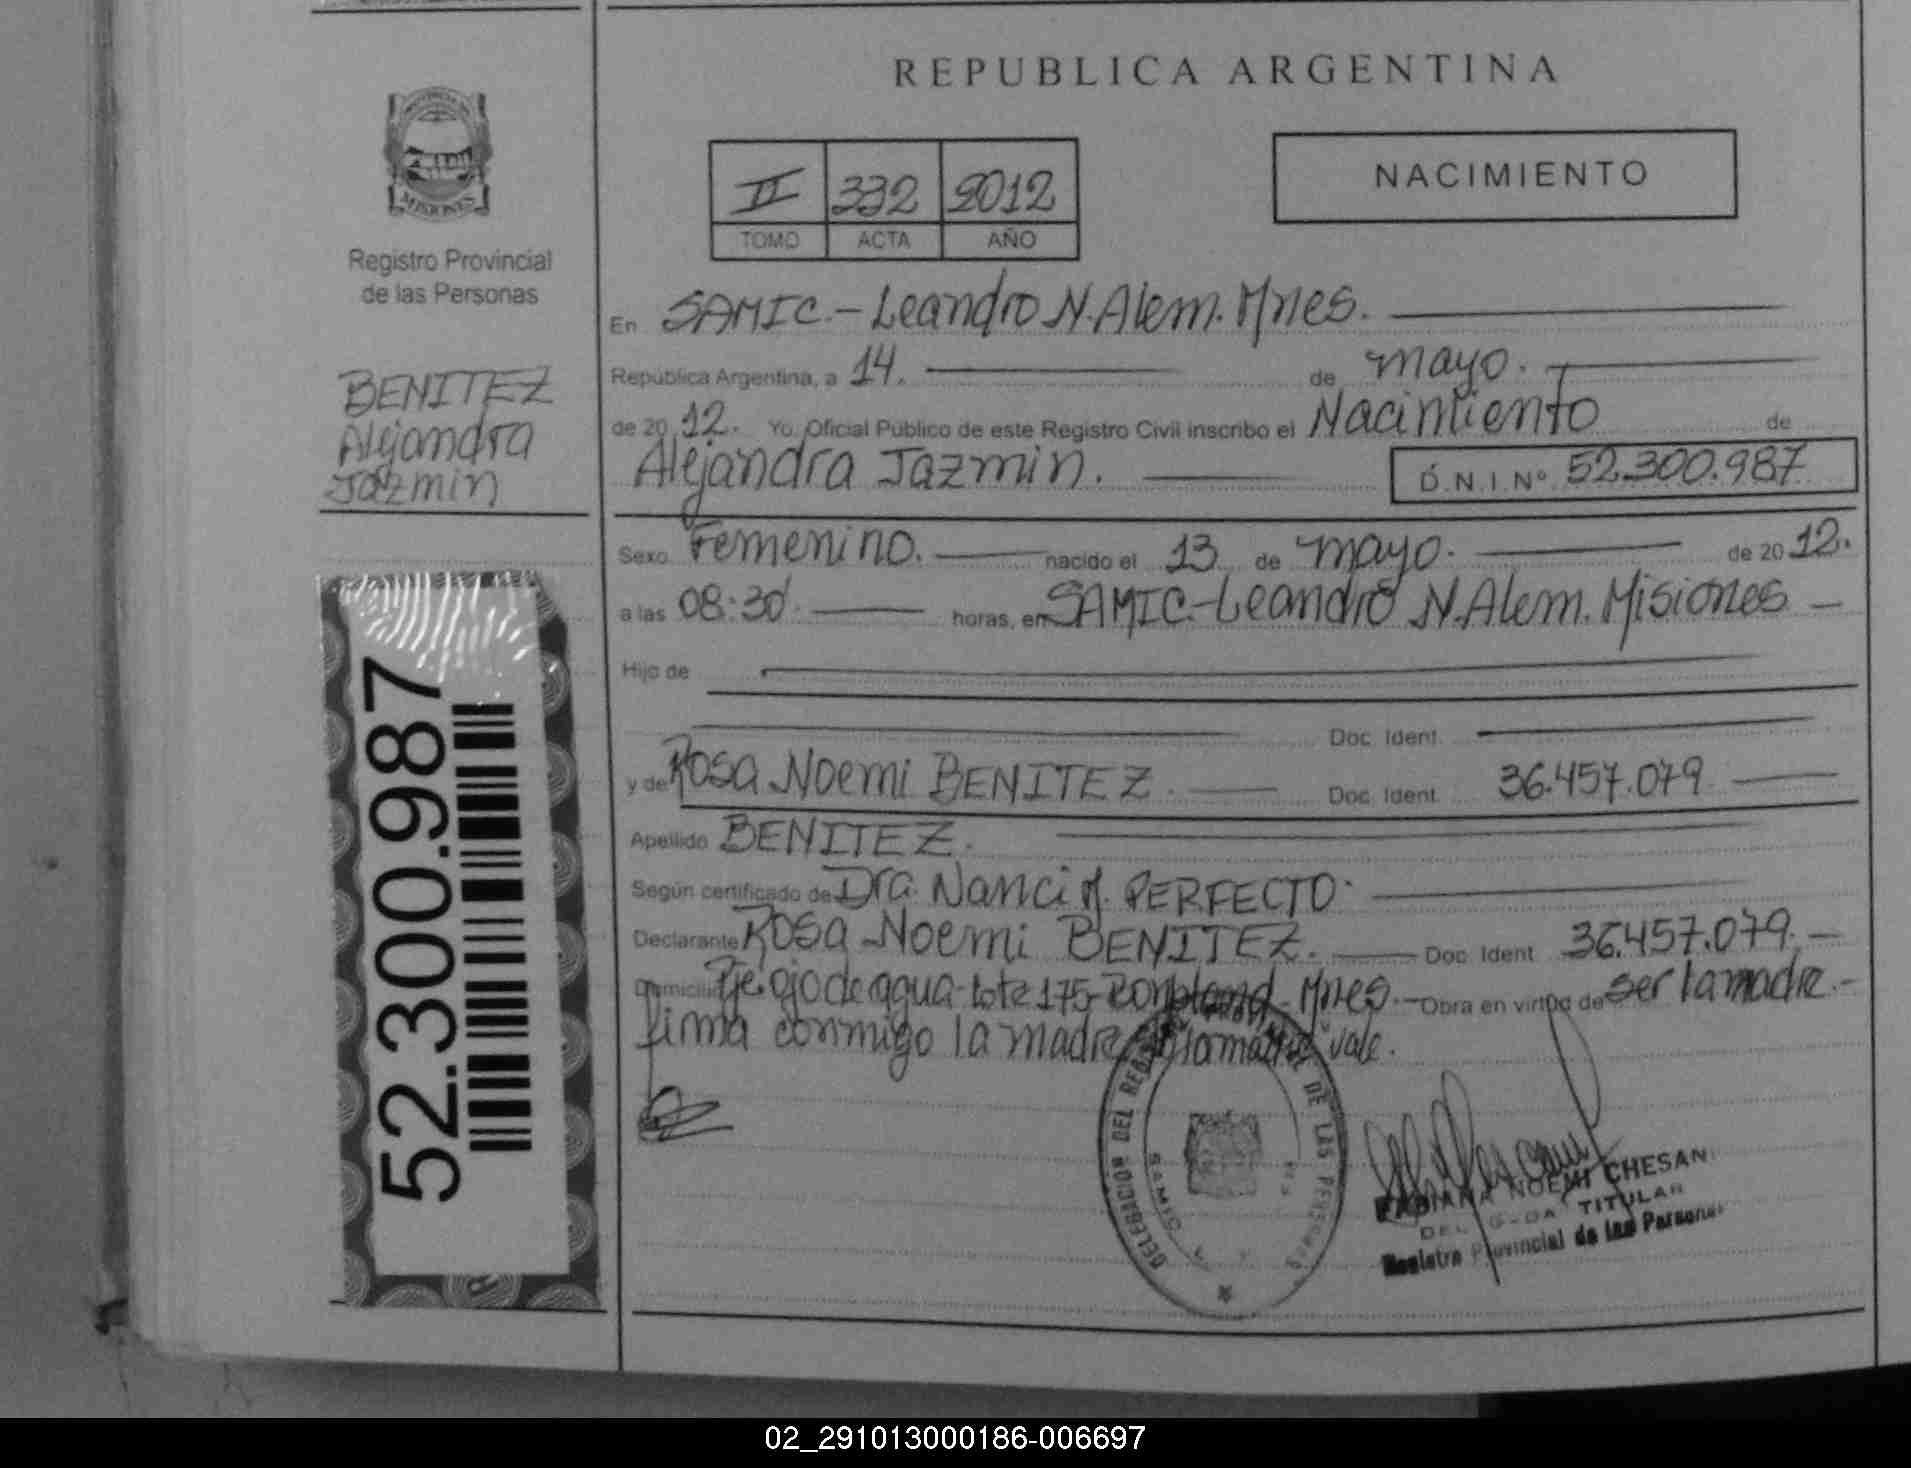 REPUBLICA ARGENTINA
PROVINCIA DE
MISIONES
Registro Provincial
de las Personas
BENITEZ
Alejandra
Jazmin
52.300.987
II 332 2012
TOMO ACTA AÑO
NACIMIENTO
En SAMIC.- Leandro N. Alem. Mnes.
República Argentina, a 14. de mayo.
de 20 12. Yo, Oficial Público de este Registro Civil inscribo el Nacimiento de
Alejandra Jazmin. D.N.I.Nº 52.300.987
Sexo Femenino. nacido el 13 de mayo. de 20 12.
a las 08:30. horas, en SAMIC-Leandro N. Alem. Misiones
Hijo de
Doc. Ident.
y de Rosa Noemi BENITEZ. Doc. Ident. 36.457.079
Apellido BENITEZ.
Según certificado de Dra. Nanci M. PERFECTO.
Declarante Rosa Noemi BENITEZ. Doc. Ident. 36.457.079.
Domicilio Pje ojo de agua-Lote 175-Bonpland-Mnes. Obra en virtud de ser la madre.-
Firma conmigo la madre la madre vale.
DELEGACION DEL DE LAS PERSONAS
SAMIC
FABIANA NOEMI CHESANI
TITULAR
Registro Provincial de las Personas
02_291013000186-006697